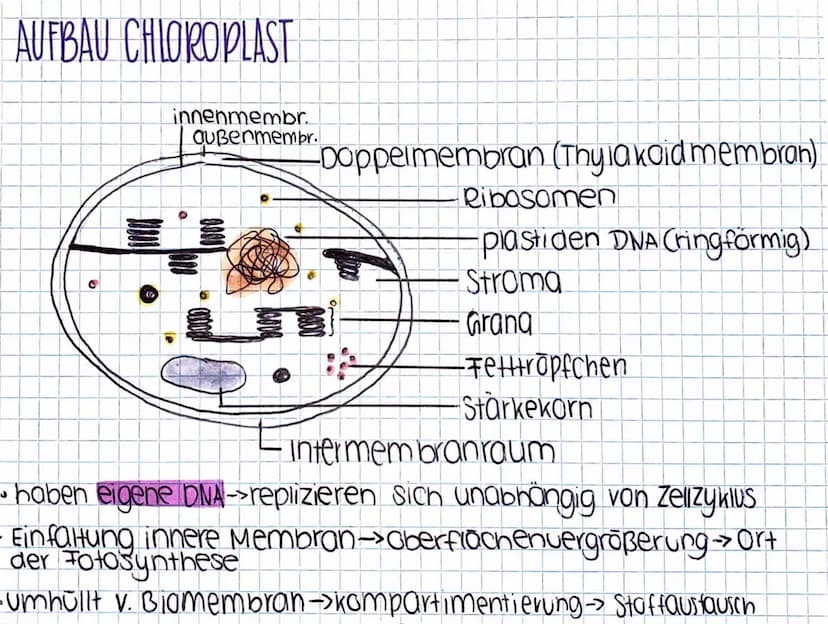 AUFBAU CHLOROPLAST
innenmembr.
außenmembr.
Doppelmembran (Thylakoidmembran)
Ribosomen
plastiden DNA (ringförmig)
Stroma
Grana
Fetttröpfchen
Stärkekorn
Intermembranraum
• haben eigene DNA → replizieren sich unabhängig von Zellzyklus
• Einfaltung innere Membran → Oberflächenvergrößerung → Ort
der Fotosynthese
• umhüllt v. Biomembran → Kompartimentierung → Stoffaustausch